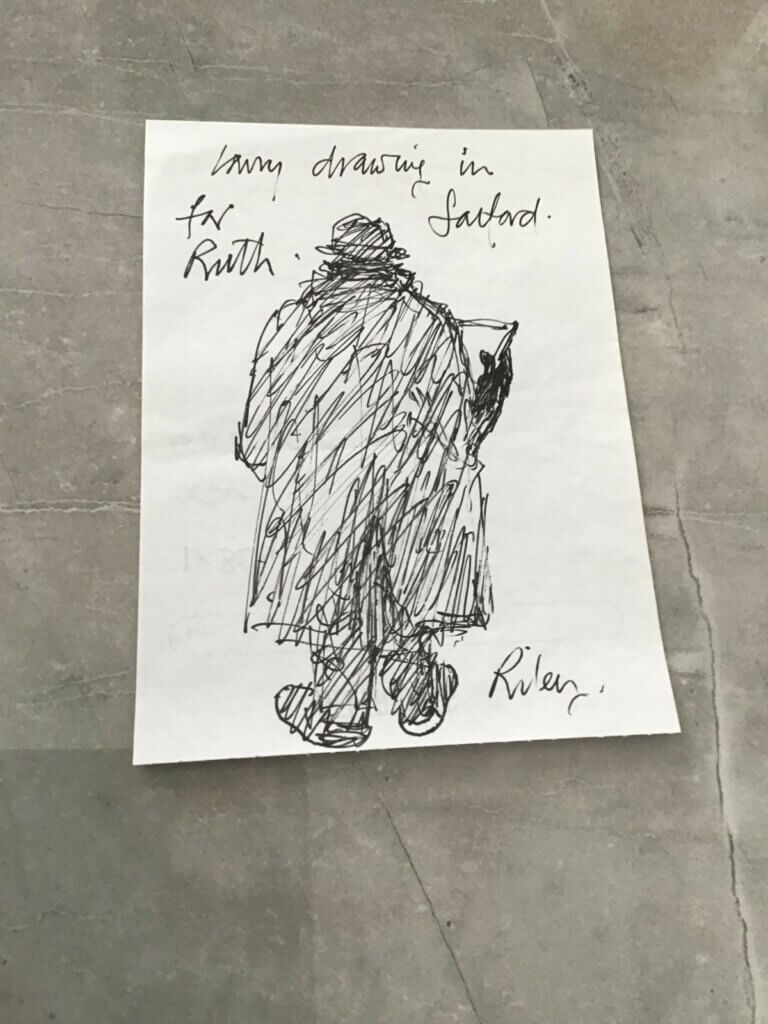 Lowry drawing in
for Salford.
Ruth.
Riley.